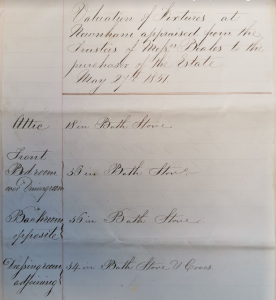 Valuation of Fixtures at
Newnham appraised from the
Trustees of Messrs Beales to the
purchaser of the Estate
May 27th 1841
Attic 18 in Bath Stove
Front
Bedroom 36 in Bath Stove
over Dining room
Back room 36 in Bath Stove
opposite
Dressing room 34 in Bath Stove & Cover
adjoining